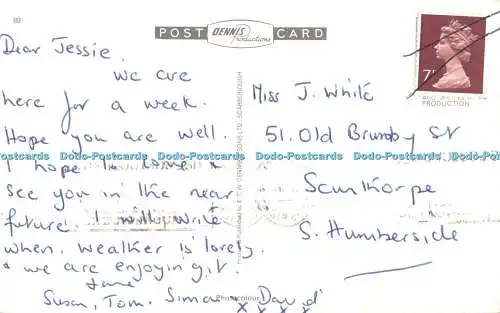 POST DENNIS Productions CARD
Dear Jessie,
We are
here for a week.
Hope you are well.
I hope to come &
see you in the near
future. I will write
when. Weather is lovely
& we are enjoying it.
Love
Susan, Tom, Simon David
x x x x
Photocolour
Miss J. White
51, Old Brumby St
Scunthorpe
S. Humberside
7
PRODUCTION
Dodo-Postcards Dodo-Postcards Dodo-Postcards Dodo-Postcards Dodo-Postcards